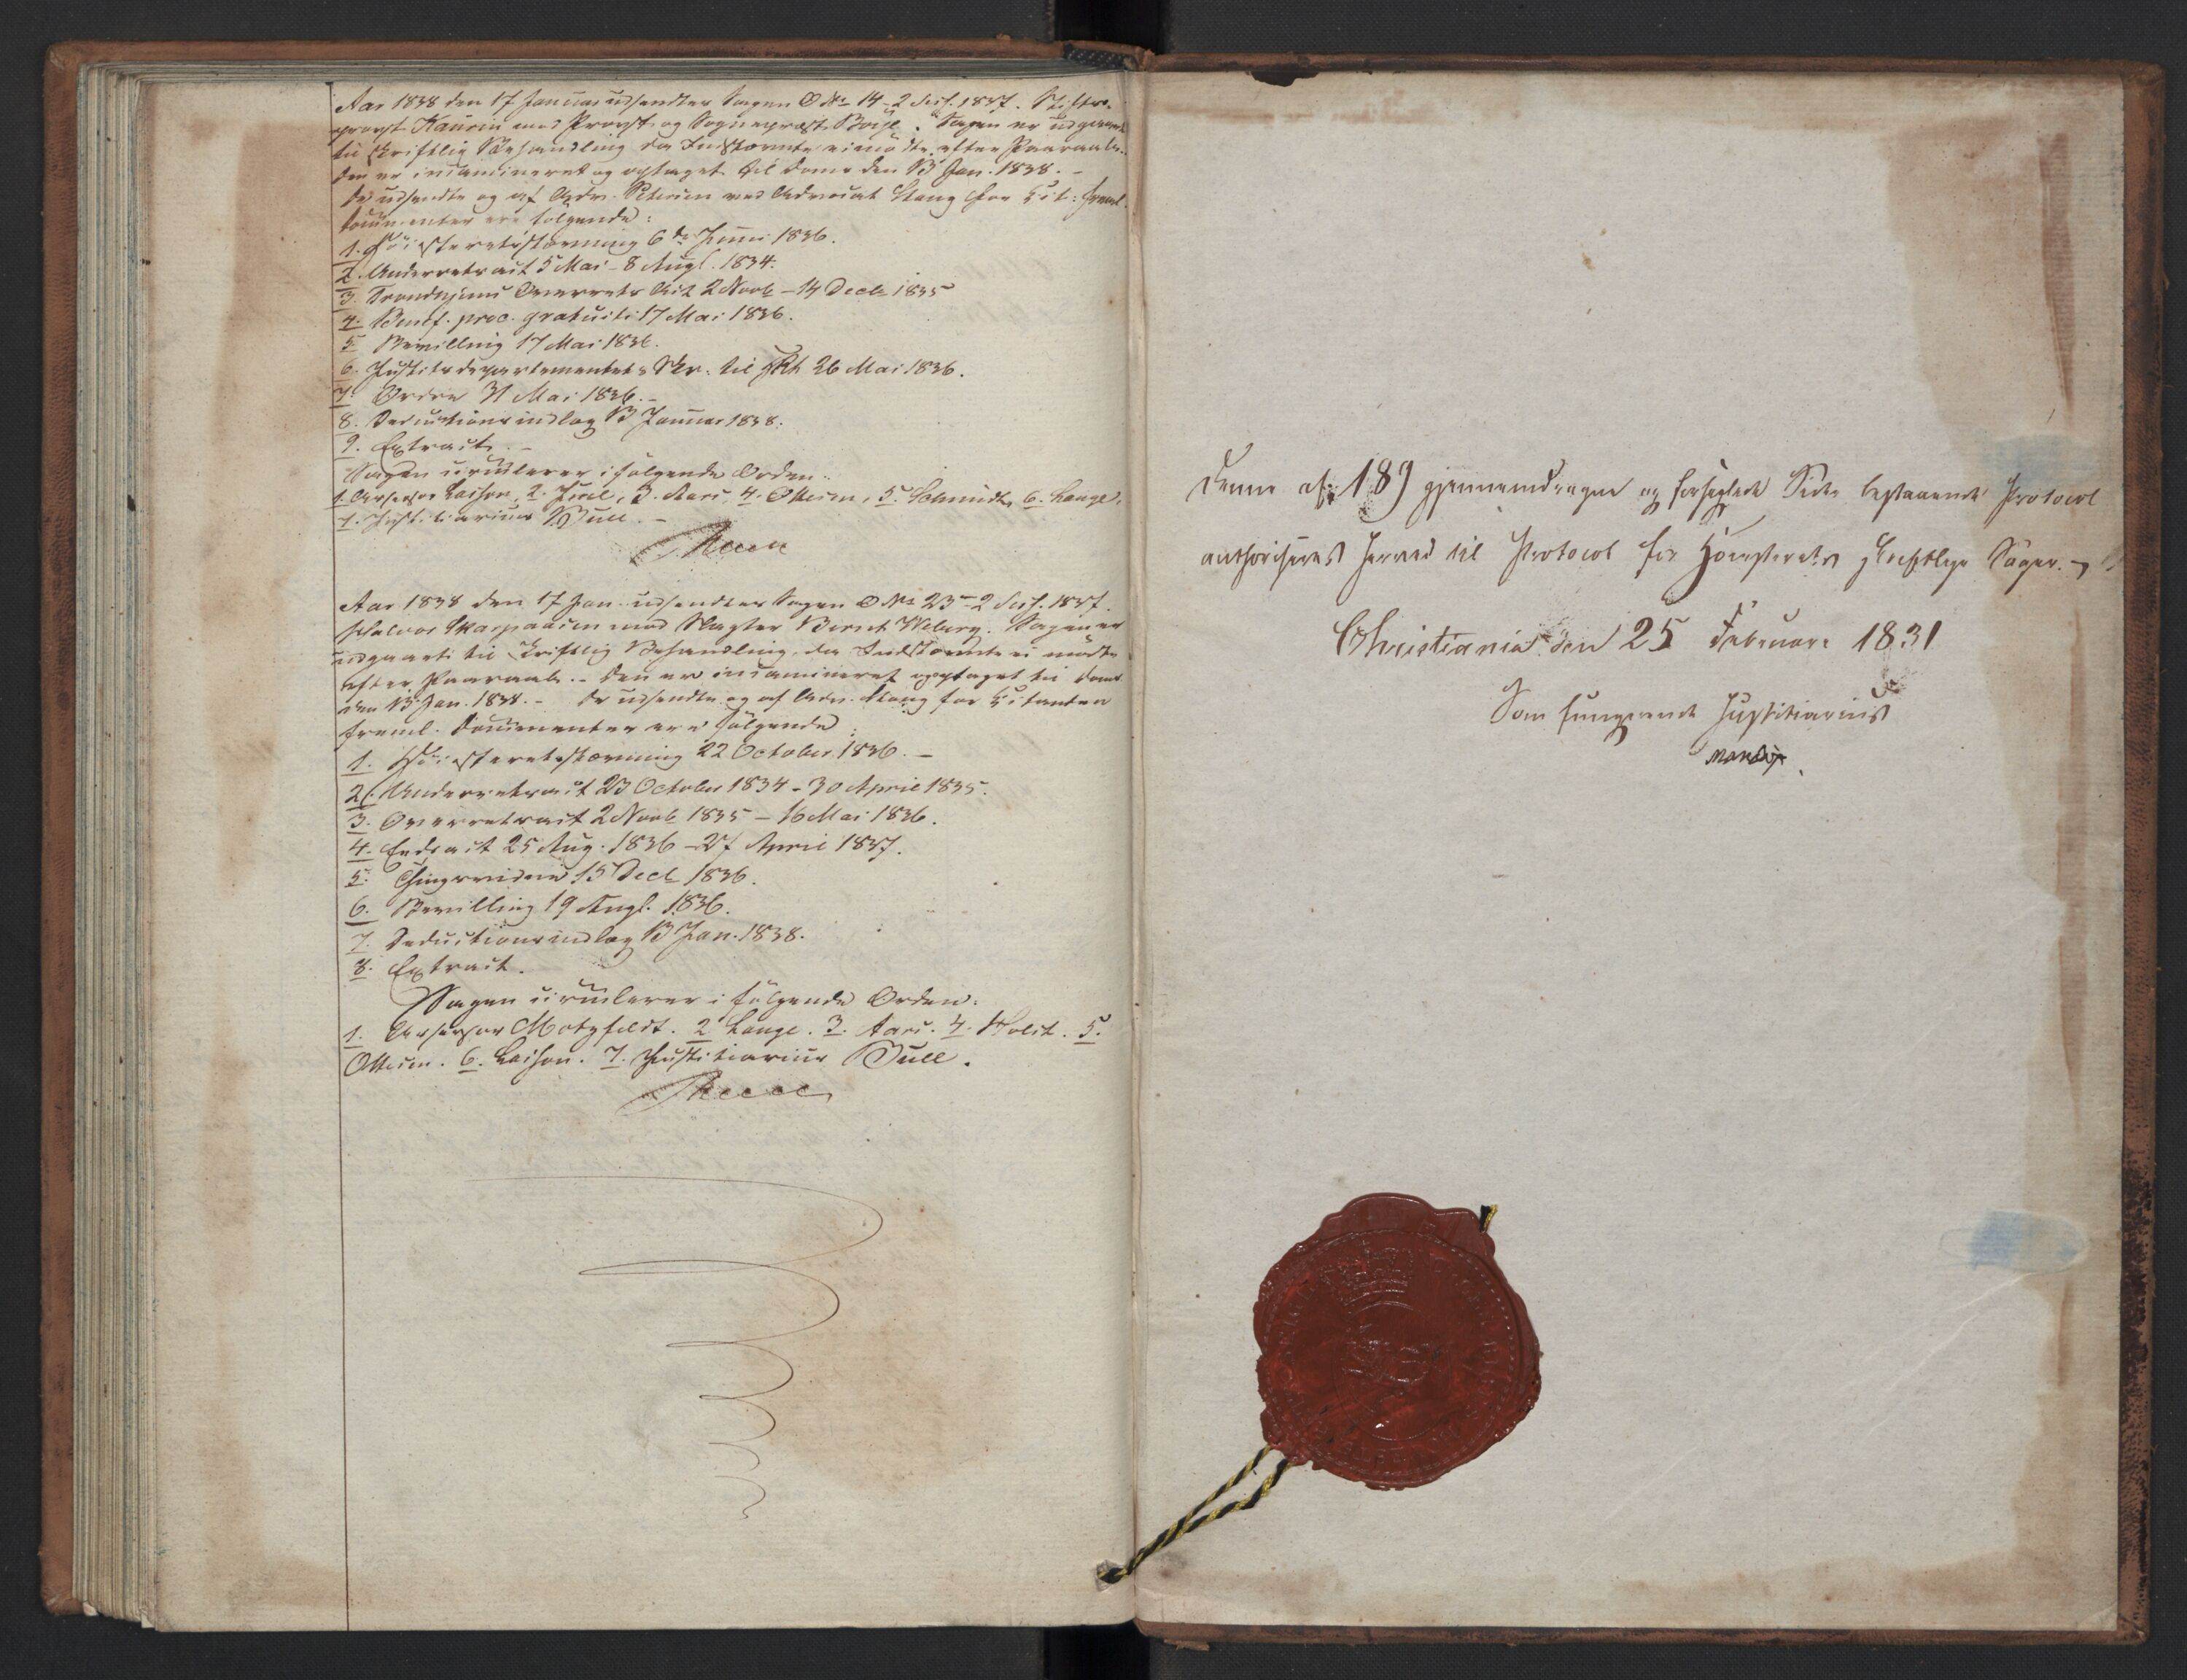 Aar 1838 den 17 Januar udsendtes Sagen O No 14 - 2 Sess. 1837. Stifts-
provst Kaurin mod Provst og Sognepræst Boije. Sagen er udgaaet
til skriftlig Behandling da Indstævnte ei mødte efter Paaraab.
den er incamineret og optaget til Doms den 13 Jan. 1838. -
De udsendte og af Adv. ved Advocat Stang for Cit: freml.
Documenter ere følgende:
1. Høiesteretsstævning 6te Juni 1836.
2. Underretsact 5 Mai - 8 Augt. 1834.
3. Trondhjems Overrets Act 2 Novb - 14 Decb 1835
4. Benef. proc. gratuiti 17 Mai 1836.
5 Bevilling 17 Mai 1836.
6. Justitsdepartementets Skr. til 26 Mai 1836.
7. Ordre 31 Mai 1836. -
8. Deductionsindlæg 13 Januar 1838.
9. Extract. -
Sagen circulerer i følgende Orden.
1. Assessor Lasson, 2. Juel, 3. Aars 4. Ottesen, 5. Schmidt, 6. Lange,
7. Justitiarius Bull. -
Aar 1838 den 17 Jan. udsendtes Sagen O No 23 - 2 Sess. 1837.
Halvor Skarpaasen mod Slagter Bernt Wiberg. Sagen er
udgaaet til skriftlig Behandling, da Indstævnte ei mødte
efter Paaraab. - Den er incamineret og optaget til Doms
den 13 Jan. 1838. - De udsendte og af Adv. Stang for Citanten
freml. Documenter ere følgende
1. Høiesteretsstævning 22 October 1836. -
2. Underretsact 23 October 1834 - 30 April 1835.
3. Overretsact 2 Novb 1835 - 16 Mai 1836.
4. Eedsact 25 Aug. 1836 - 27 April 1837.
5. Thingsvidne 15 Decb 1836.
6. Bevilling 19 Augt. 1836.
7. Deductionsindlæg 13 Jan. 1838.
8. Extract.
Sagen circulerer i følgende Orden:
1. Assessor Motzfeldt. 2 Lange. 3. Aars. 4. Holst. 5.
Ottesen. 6. Lasson. 7. Justitiarius Bull.
Denne af 189 gjennemdragne og forseglede Sider bestaaende Protocol
authoriseres herved til Protocol for Høiesterets skriftlige Sager. -
Christiania den 25 Februar 1831
Som fungerende Justitiarius